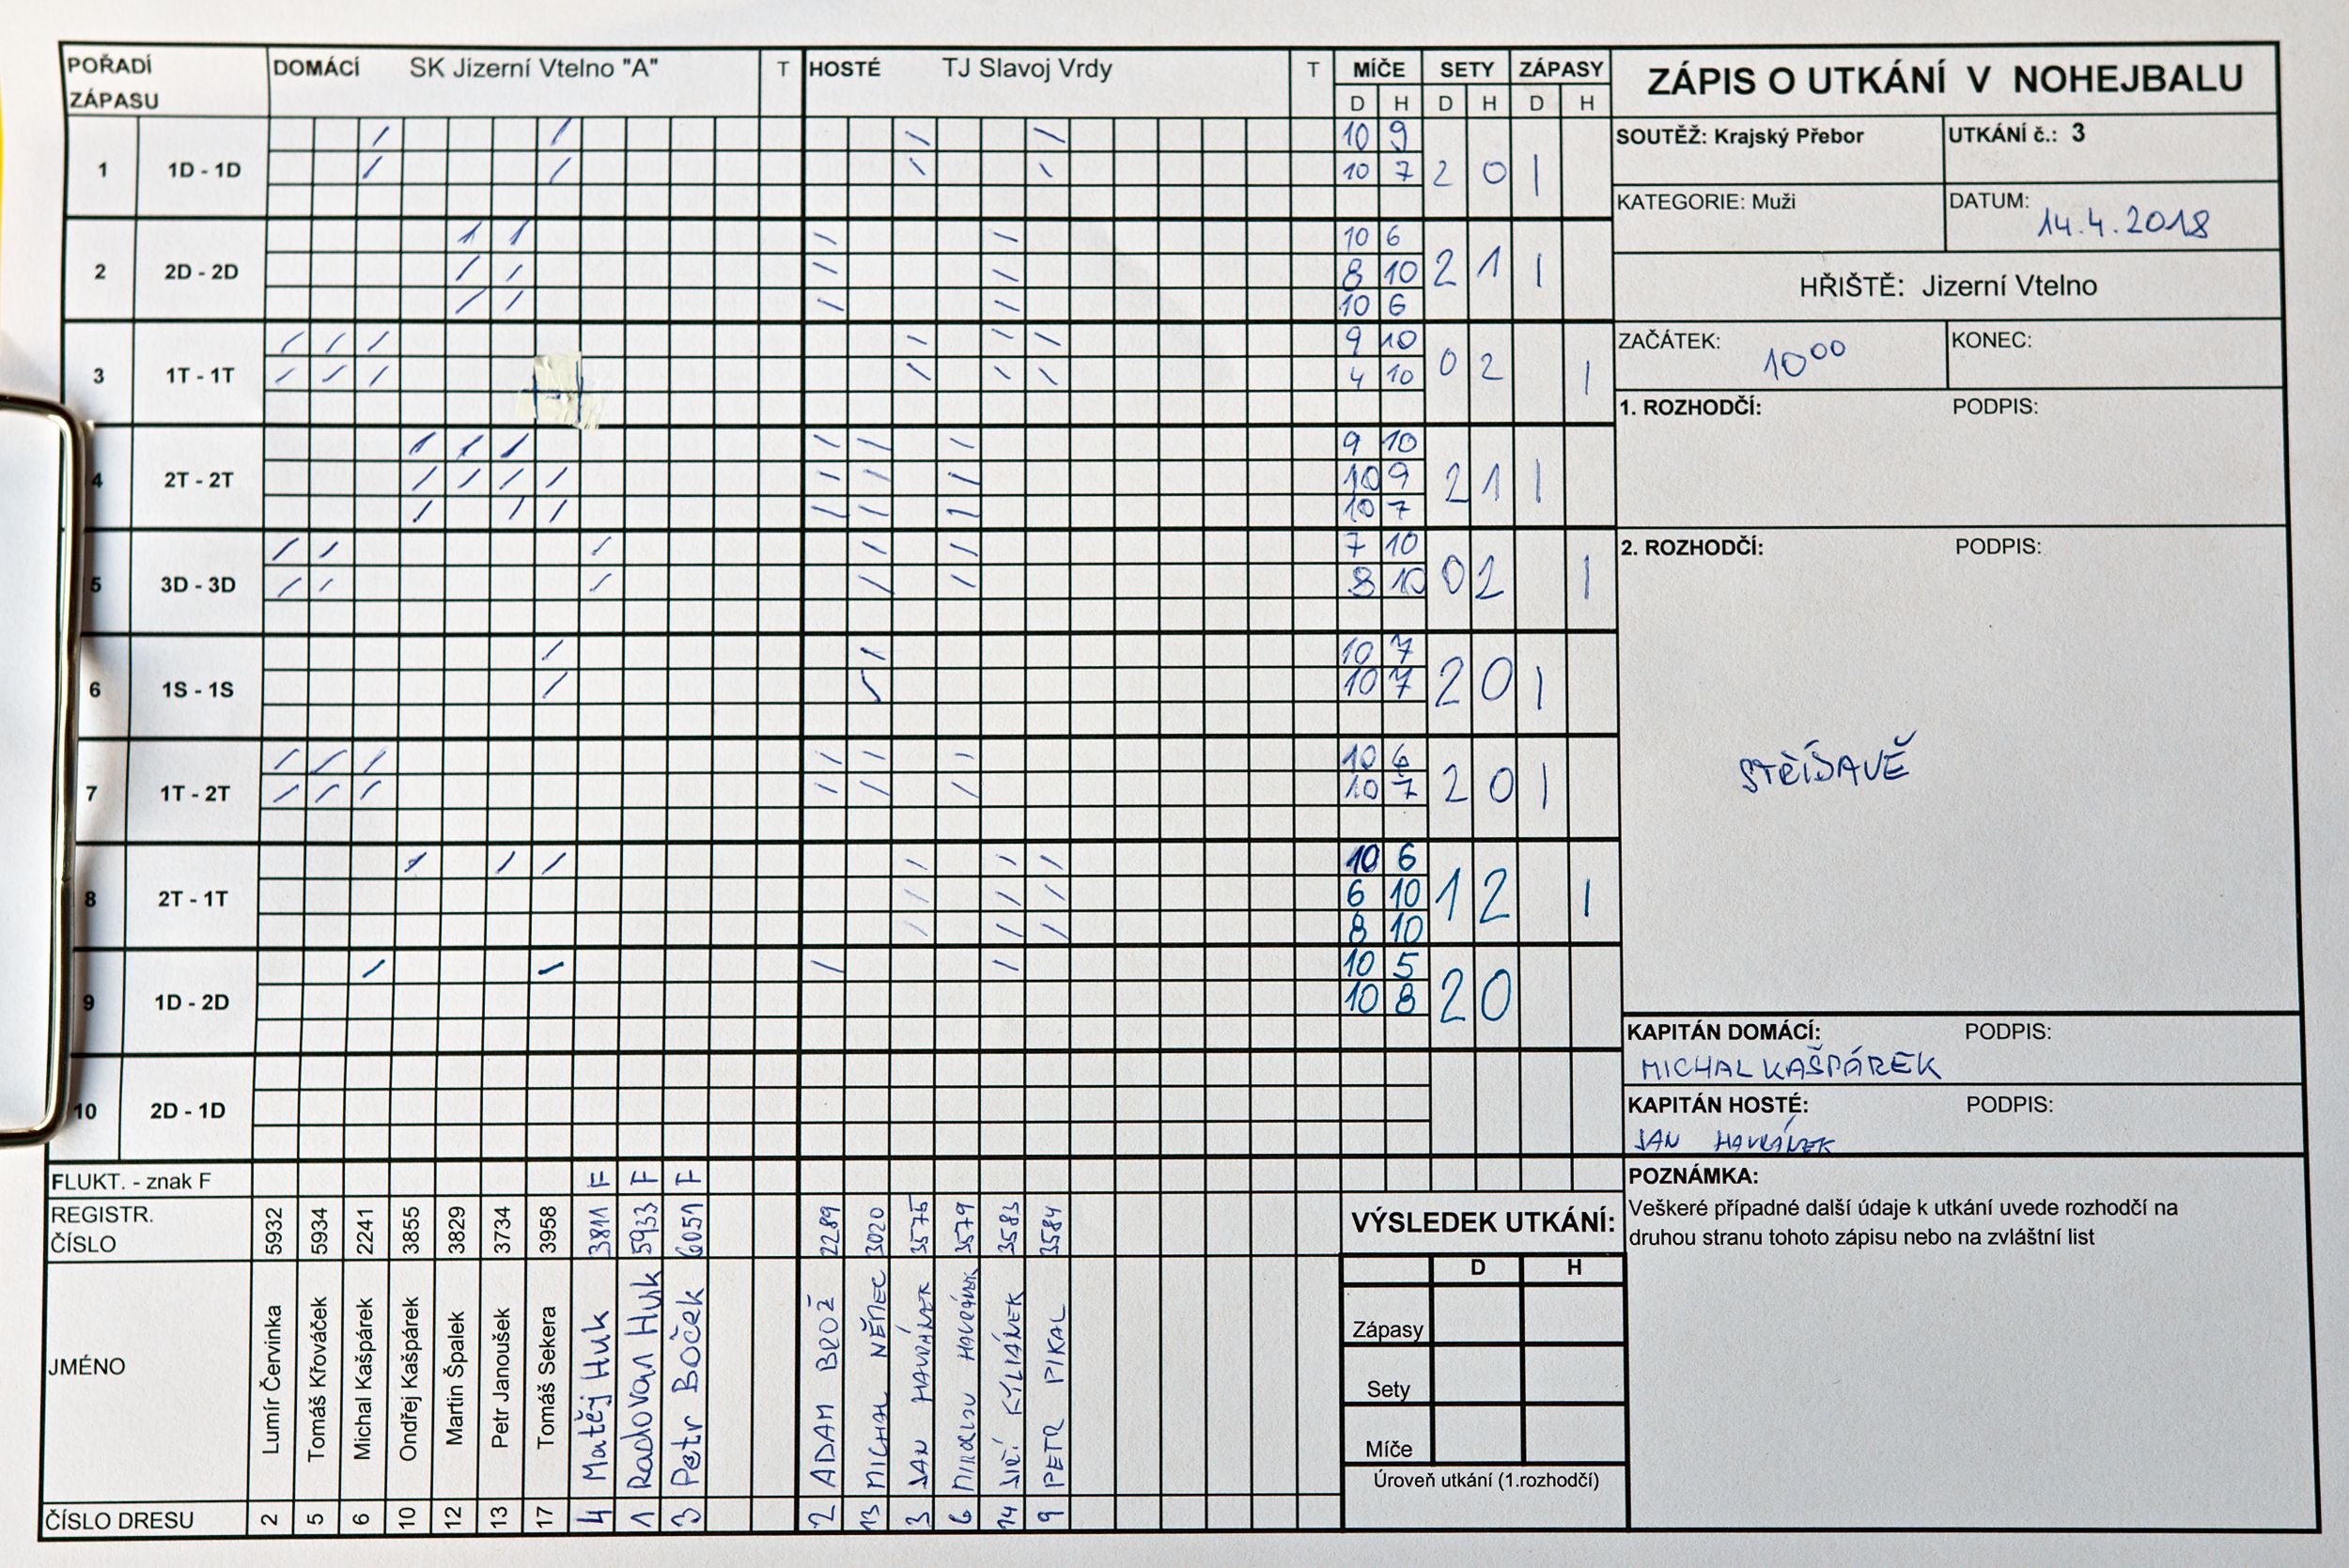 POŘADÍ ZÁPASU DOMÁCÍ SK Jizerní Vtelno "A" T HOSTÉ TJ Slavoj Vrdy T MÍČE SETY ZÁPASY
D H D H D H
1 1D - 1D 10 9 2 0 1
10 7
2 2D - 2D 10 6 2 1 1
8 10
10 6
3 1T - 1T 9 10 0 2 1
4 10
4 2T - 2T 9 10 2 1 1
10 9
10 7
5 3D - 3D 7 10 0 2 1
8 10
6 1S - 1S 10 7 2 0 1
10 7
7 1T - 2T 10 6 2 0 1
10 7
8 2T - 1T 10 6 1 2 1
6 10
8 10
9 1D - 2D 10 5 2 0
10 8
10 2D - 1D
FLUKT. - znak F F F F
REGISTR. ČÍSLO 5932 5934 2241 3855 3829 3734 3958 3811 5933 6051 2289 3020 3575 3579 3583 3584
JMÉNO
Lumír Červinka
Tomáš Křováček
Michal Kašpárek
Ondřej Kašpárek
Martin Špalek
Petr Janoušek
Tomáš Sekera
Matěj Huk
Radovan Huk
Petr Boček
ADAM BROŽ
MICHAL NĚMEC
JAN HAVRÁNEK
MIROSLAV HAVRÁNEK
JIŘÍ KYLIÁNEK
PETR PIKAL
ČÍSLO DRESU 2 5 6 10 12 13 17 4 1 3 2 13 3 6 14 9
ZÁPIS O UTKÁNÍ V NOHEJBALU
SOUTĚŽ: Krajský Přebor UTKÁNÍ č.: 3
KATEGORIE: Muži DATUM: 14.4.2018
HŘIŠTĚ: Jizerní Vtelno
ZAČÁTEK: 10⁰⁰ KONEC:
1. ROZHODČÍ: PODPIS:
2. ROZHODČÍ: PODPIS:
STŘÍDAVĚ
KAPITÁN DOMÁCÍ: PODPIS:
MICHAL KAŠPÁREK
KAPITÁN HOSTÉ: PODPIS:
JAN HAVRÁNEK
POZNÁMKA:
Veškeré případné další údaje k utkání uvede rozhodčí na
druhou stranu tohoto zápisu nebo na zvláštní list
VÝSLEDEK UTKÁNÍ:
D H
Zápasy
Sety
Míče
Úroveň utkání (1.rozhodčí)